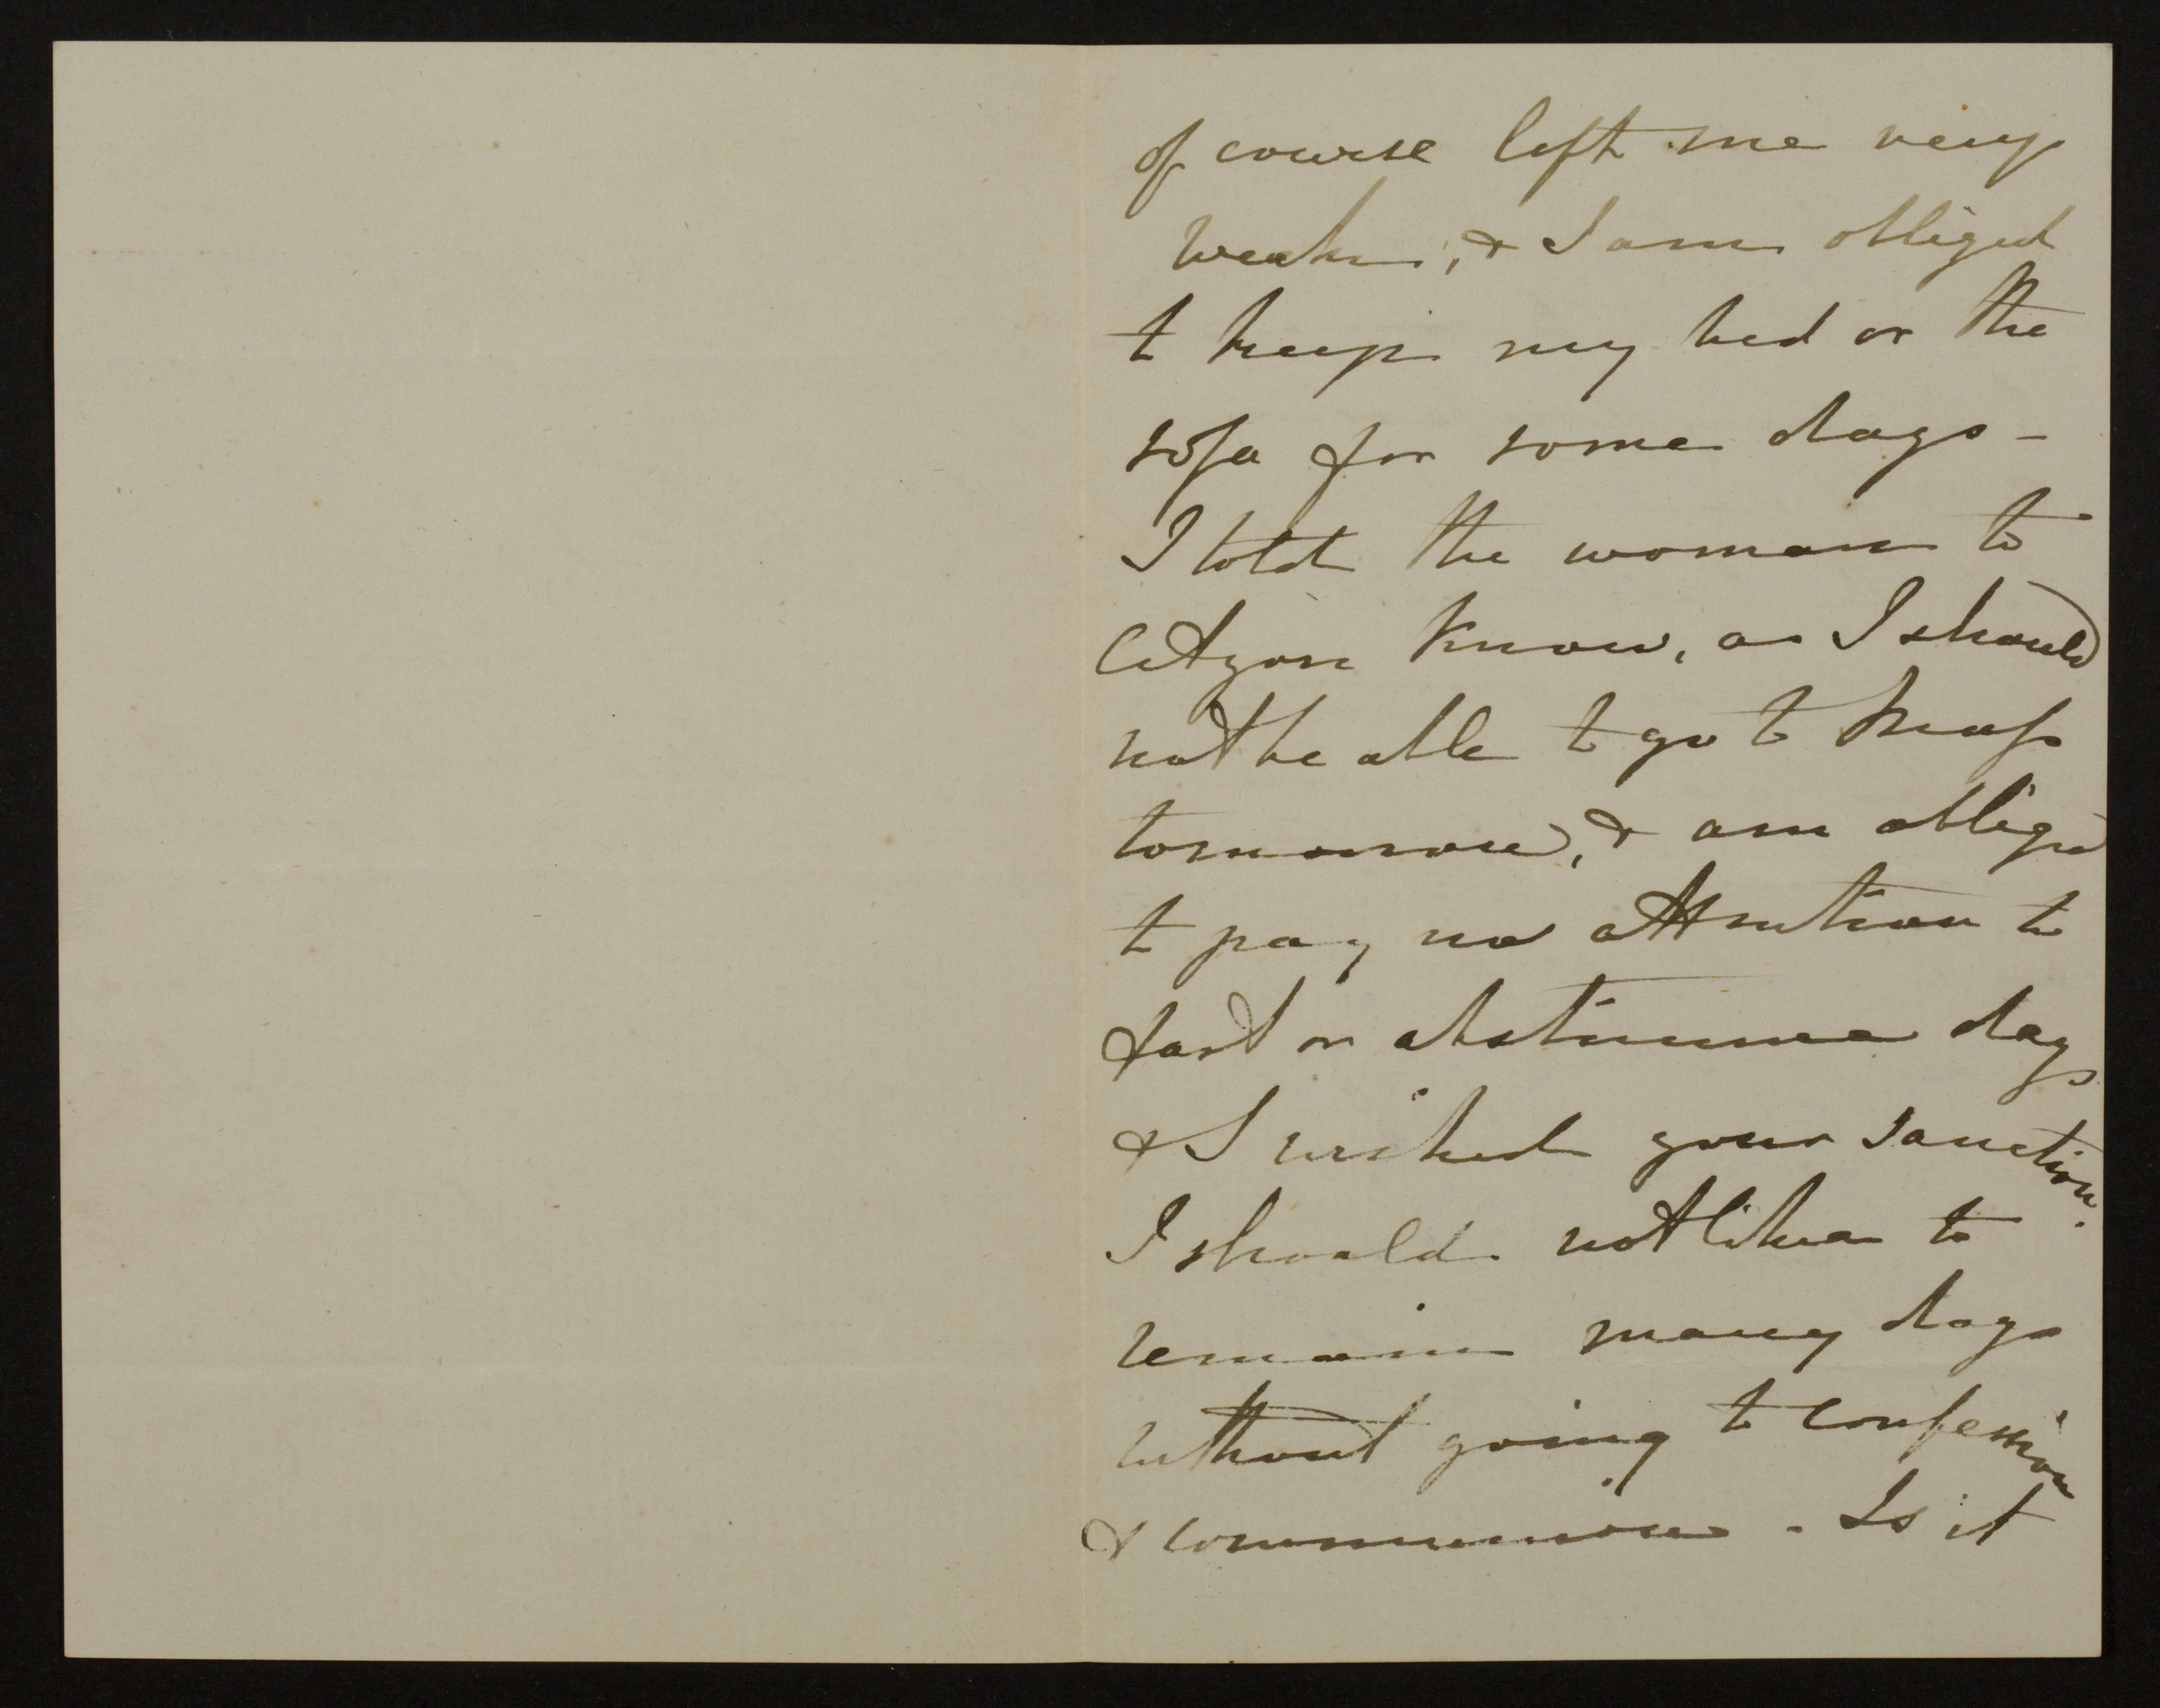 of course left me very
weak, & I am obliged
to keep my bed or the
sofa for some days -
I told the woman to
let you know, as I should
not be able to go to Mass
tomorrow, & am obliged
to pay no attention to
fast or abstinence days
& I wished your sanction.
I should not like to
remain many days
without going to confession
& communion - Is it